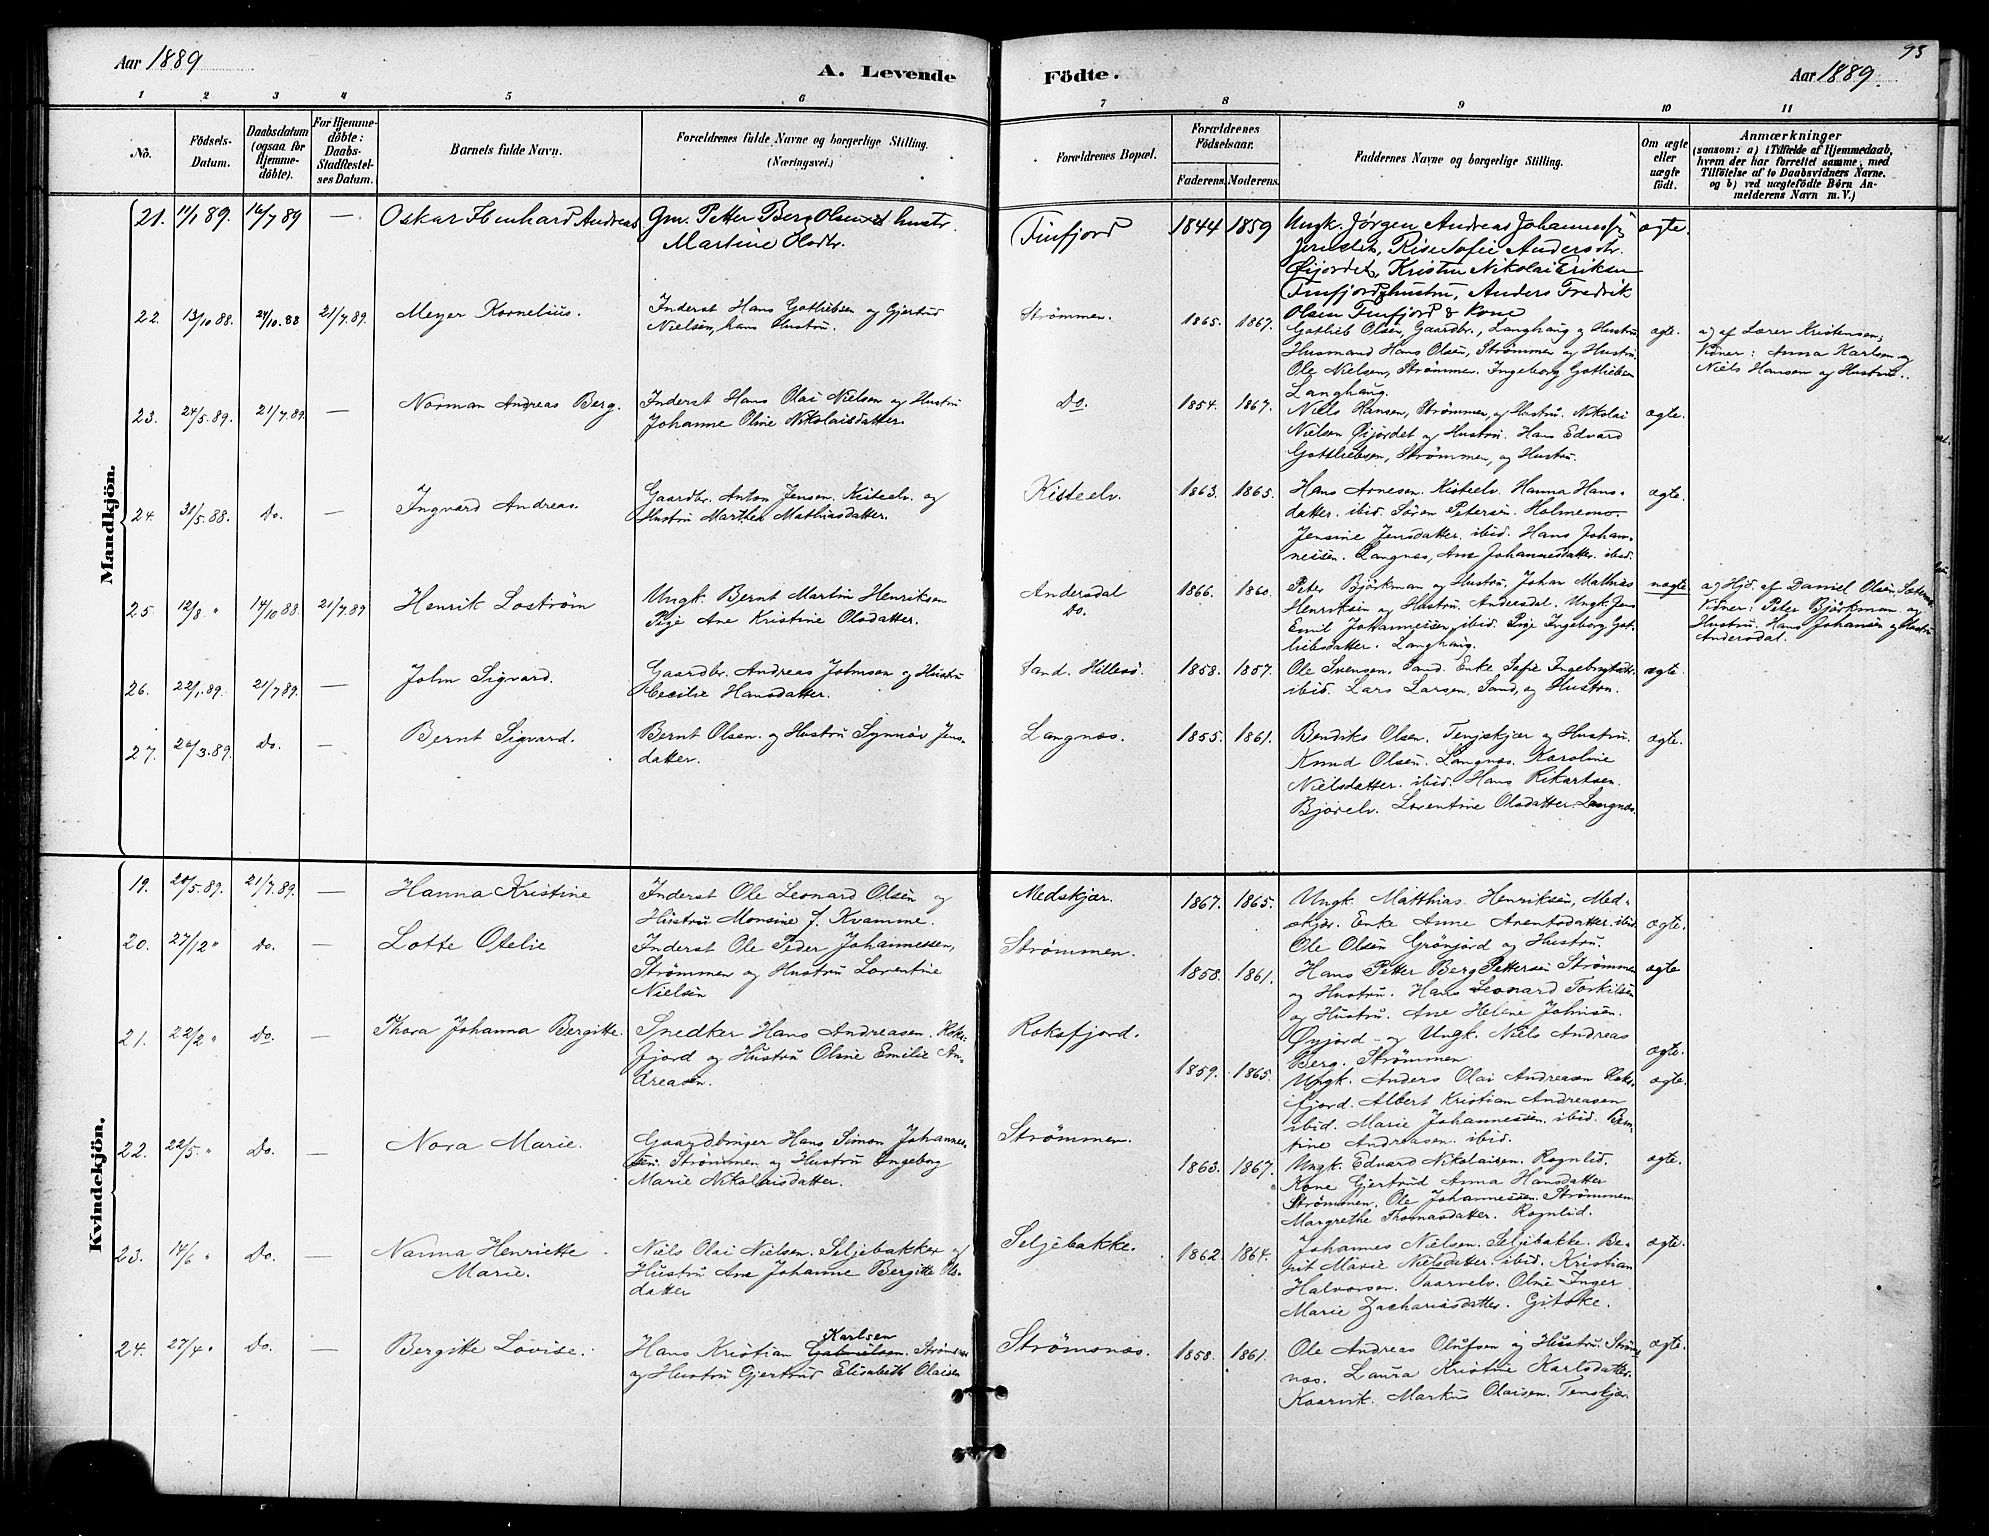 Aar 1889
A. Levende
Födte.
Aar 1889.
93
1 2 3 4 5 6 7 8 9 10 11
No.
Födsels-
Datum.
Daabsdatum
(ogsaa for
Hjemme-
döbte).
For Hjemme-
döbte:
Daabs-
Stadfæstel-
ses Datum.
Barnets fulde Navn.
Forældrenes fulde Navne og borgerlige Stilling.
(Næringsvei.)
Forældrenes Bopæl.
Forældrenes
Födselsaar.
Faderens. Moderens.
Faddernes Navne og borgerlige Stilling.
Om ægte
eller
uægte
födt.
Anmærkninger
(saasom: a) i Tilfælde af Hjemmedaab,
hvem der har forrettet samme, med
Tilföielse af to Daabsvidners Navne.
og b) ved uægtefödte Börn An-
melderens Navn m. V.)
Mandkjön.
21. 11/1 89. 16/7 89 — Oskar Ebenhard Andreas
Gm. Petter Berg Olsen & hustr.
Martine Olsdtr.
Finfjord 1844 1859
Ungk. Jørgen Andreas Johanness.,
Andersdtr.
Øijordet, Kristen Nikolai Eriksen
Finfjord & hustru, Anders Fredrik
Olsen Finfjord & Kone
ægte.
22. 13/10 88. 24/10.88 21/7.89. Meyer Kornelius.
Inderst Hans Gotliebsen og Gjertrud
Nielsen, hans Hustru.
Strömmen. 1865. 1867.
Gotlieb Olsen, Gaardbr., Langhaug og Hustru
Husmand Hans Olsen, Strömmen og Hustru.
Ole Nielsen, Strömmen. Ingeborg Gotliebsen
Langhaug.
ægte.
a) af Lærer Kristensen;
Vidner: Anna Karlsen og
Niels Hansen og Hustru.
23. 24/5.89. 21/7.89. — Norman Andreas Berg.
Inderst Hans Olai Nielsen og Hustru
Johanne Oline Nikolaisdatter.
Do. 1854. 1867.
Niels Hansen, Strömmen, og Hustru. Nikolai
Nielsen Öijordet og Hustru. Hans Edvard
Gottliebsen, Strömmen, og Hustru.
ægte.
24. 31/5.88. Do. — Ingvard Andreas.
Gaardbr. Anton Jensen. Kisteelv. og
Hustru Marthea Mathiasdatter.
Kisteelv. 1863. 1865.
Hans Arnesen. Kisteelv. Hanna Hans-
datter. ibid. Sören Petersen. Holmemo.
Jensine Jensdatter. ibid. Hans Johan-
nessen. Langnæs, Ane Johannesdatter. ibid.
ægte.
25. 12/8 " 14/10 88. 21/7.89 Henrik Loström
Ungk. Bernt Martin Henriksen
Pige Ane Kristine Olsdatter.
Andersdal
Do.
1866. 1860.
Peter Björkman og Hustru, Johan Mathias
Henriksen og Hustru. Andersdal. Ungk. Jens
Emil Johannessen, ibid. Pige Ingeborg Got-
liebsdatter. Langhaug.
uægte
a) Hjd. af Daniel Olsen,
Vidner: Peter Björkman og
Hustru. Hans Johansen og Hustru
Andersdal.
26. 22/1.89. 21/7 89. — John Sigvard.
Gaardbr. Andreas Johnsen og Hustru
Cecilie Hansdatter.
Sand. Hillesö. 1858. 1857.
Ole Svensen, Sand. Enke Sofie Ingebrigtsdtr.
ibid. Lars Larsen, Sand, og Hustru.
ægte.
27. 26/3.89. Do. — Bernt Sigvard.
Bernt Olsen. og Hustru Synnöv Jens-
datter.
Langnæs. 1855. 1861.
Bendiks Olsen. Tenskjær og Hustru.
Knud Olsen. Langnæs. Karoline
Nielsdatter. ibid. Hans Rikartsen
Bjorelv. Lorentine Olsdatter. Langnæs.
ægte.
Kvindekjön.
19. 20/5.89. 21/7.89. — Hanna Kristine
Inderst Ole Leonard Olsen og
Hustru Monsine f. Kvamme.
Medskjær. 1867. 1865.
Ungk. Matthias Henriksen, Med-
skjær. Enke Anne Arentsdatter. ibid.
Ole Olsen Grönjord og Hustru.
ægte.
20. 27/12 " Do. — Lotte Otelie
Inderst Ole Peder Johannessen,
Strömmen og Hustru Lorentine
Nielsen
Strömmen. 1858. 1861.
Hans Petter Berg Pettersen Strömmen
og Hustru. Hans Leonard Torkilsen
og Hustru. Ane Helene Johnsen.
Öyjord - og Ungk. Niels Andreas
Berg. Strömmen
ægte
21. 22/2 " Do — Thora Johanna Bergitte.
Snedker Hans Andreasen. Roks-
fjord og Hustru Oline Emilie An-
dreasen.
Roksfjord. 1859. 1865.
Ungk. Anders Olai Andreasen Roks-
fjord. Albert Kristian Andreasen
ibid. Marie Johannessen. ibid. Ben-
tine Andreasen. ibid.
ægte.
ægte.
22. 22/5 " Do. — Nora Marie.
Gaardbruger Hans Simon Johannes-
sen. Strömmen og Hustru Ingeborg
Marie Nikolaisdatter.
Strömmen. 1863. 1867.
Ungk. Edvard Nikolaisen. Rognlid.
Kone Gjertrud Anna Hansdatter
Strömmen. Ole Johannessen. Strömmen
Margrethe Thomasdatter. Rognlid.
ægte.
23. 14/6 " Do. — Nanna Henriette
Marie.
Niels Olai Nielsen. Seljebakken og
Hustru Ane Johanne Bergitte Ols-
datter
Seljebakke. 1862. 1864.
Johannes Nielsen. Seljebakke. Be-
rit Marie Nielsdatter. ibid. Kristian
Halvorsen. Vaarnelv. Oline Inger
Marie Zachariasdatter. Gitske.
ægte.
24. 27/4 " Do. — Bergitte Lovise.
Karlsen
Hans Kristian Gabrielsen. Strömsnæs
og Hustru Gjertrud Elisabeth Olaisen
Strömsnæs. 1858. 1861.
Ole Andreas Olufsen og Hustru. Ströms-
næs. Laura Kristine Karlsdatter.
Kaarvik. Markus Olaisen. Tenskjær.
ægte.